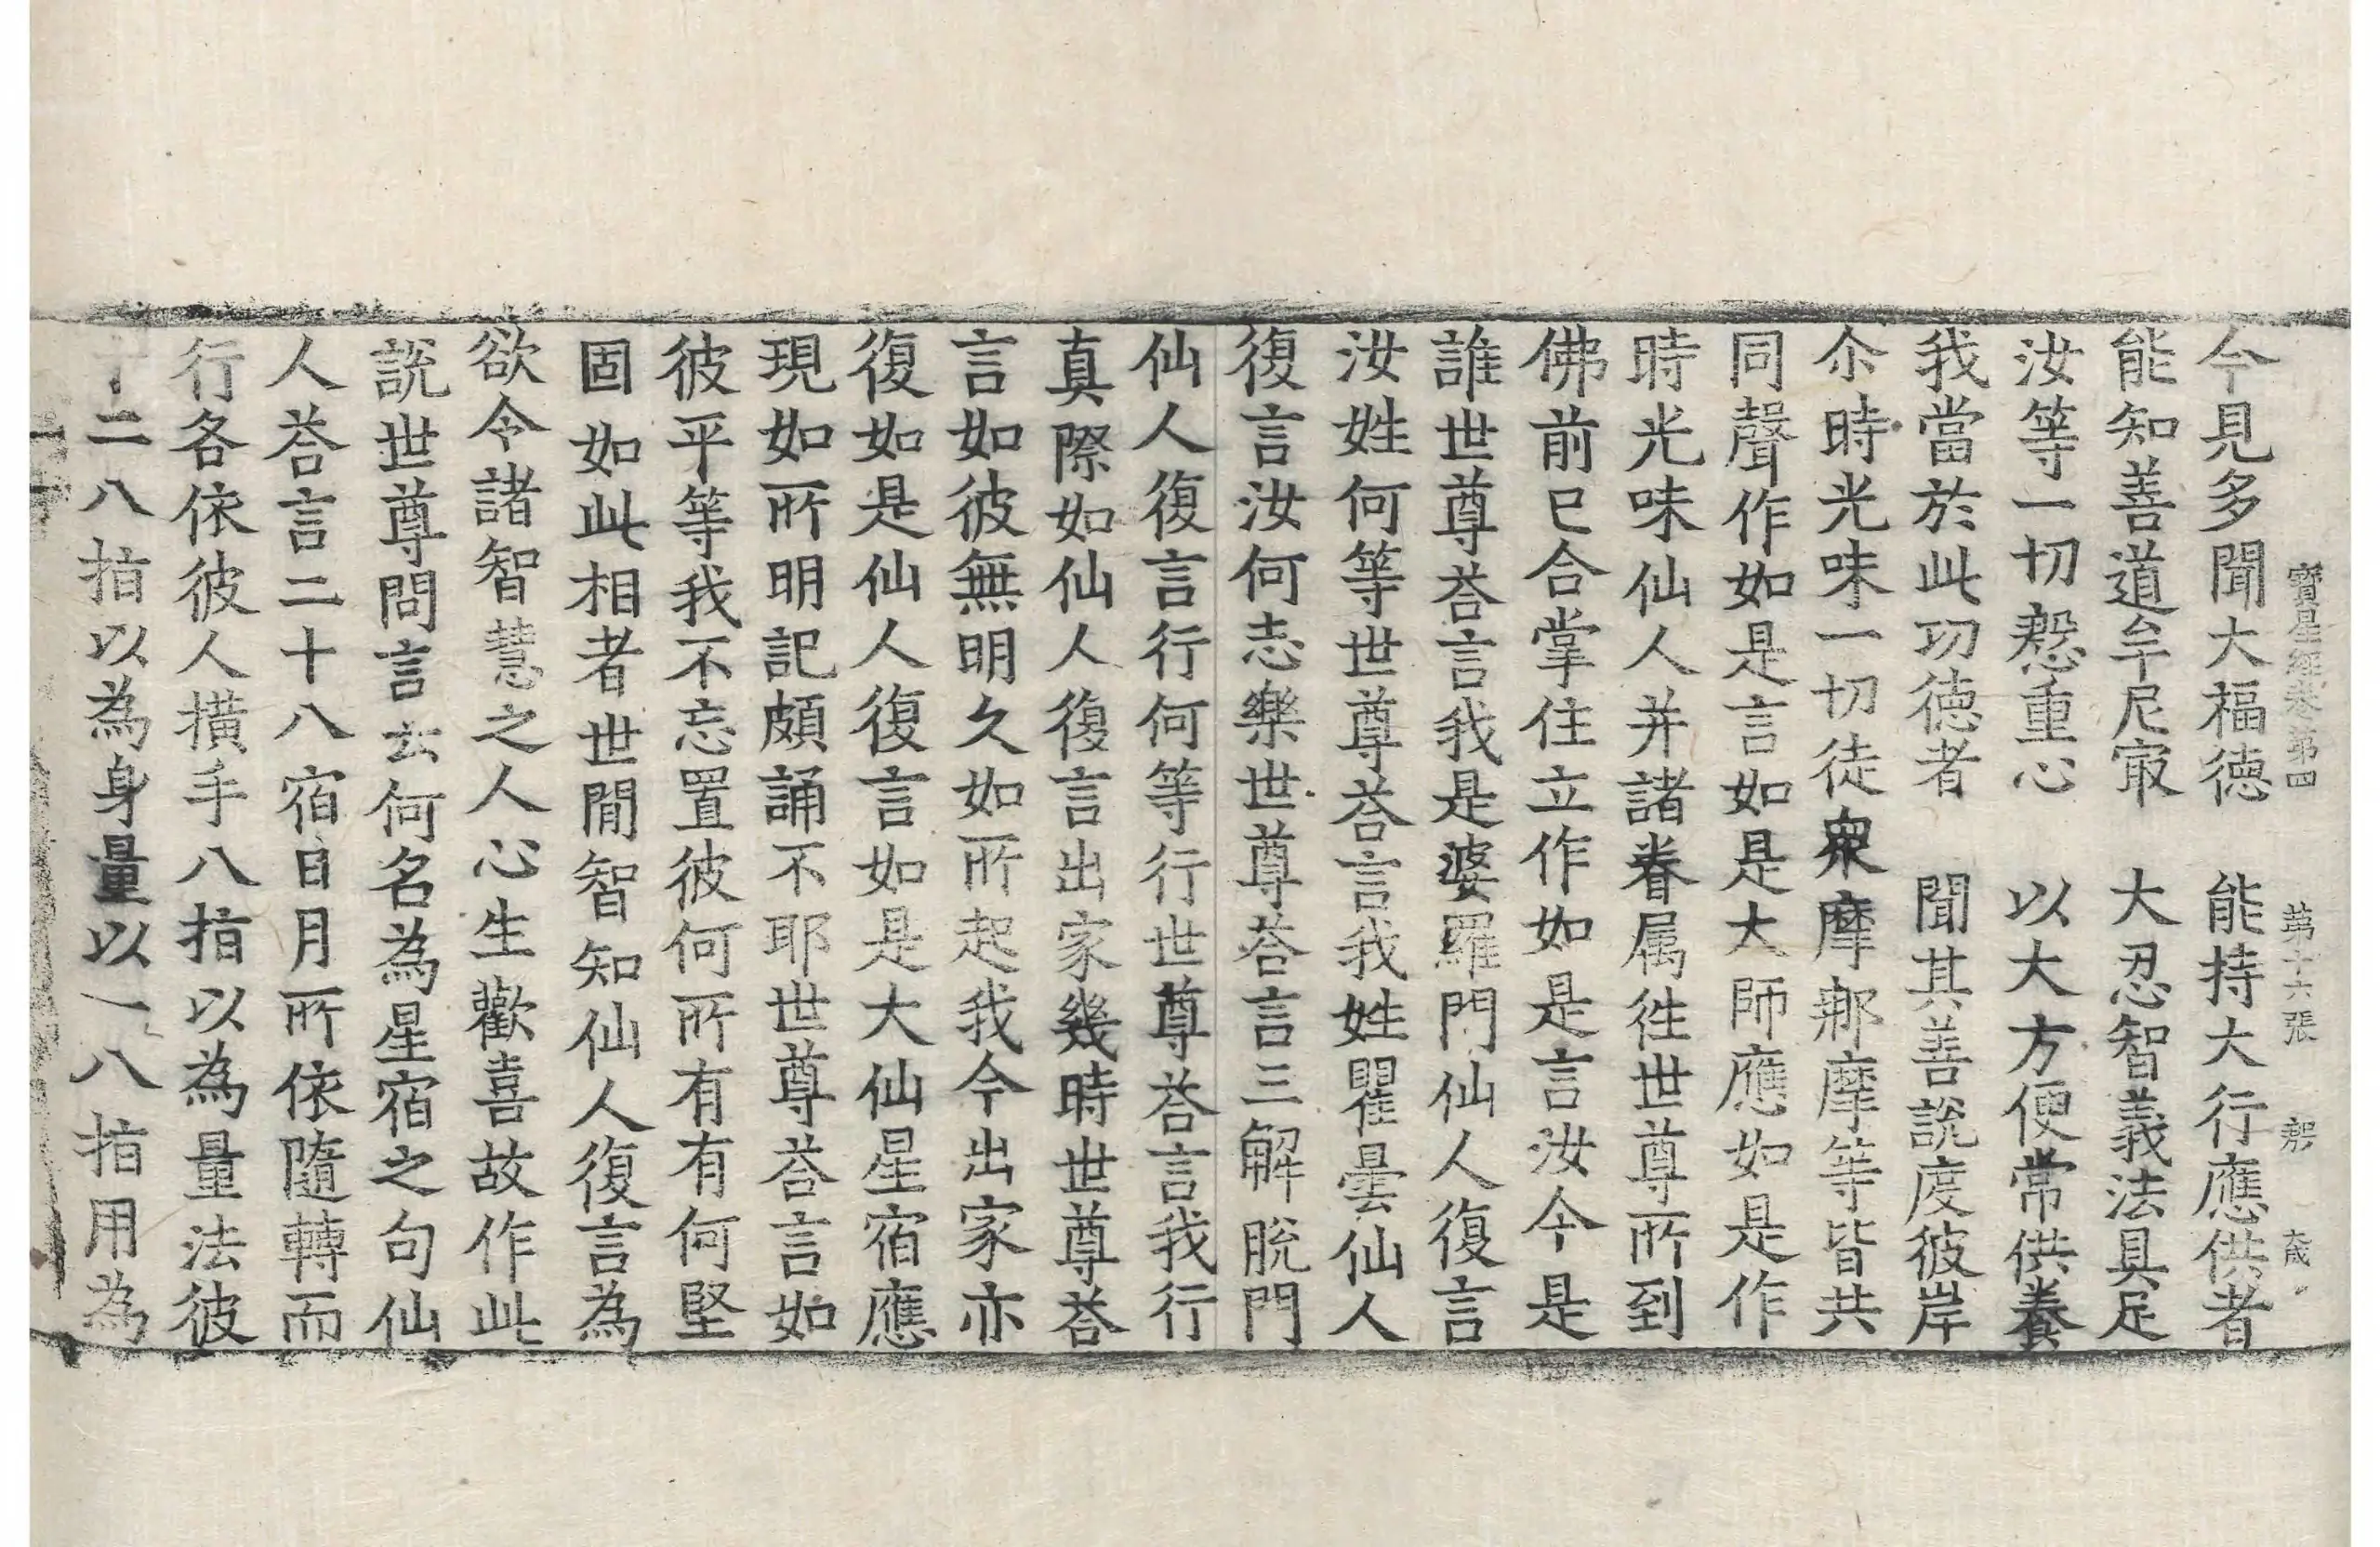 寶星經卷第四 第十六張 𢡟 大成
今見多聞大福徳 能持大行應供者
能知善道牟尼㝡 大忍智義法具足
汝等一切慇重心 以大方便常供養
我當於此功徳者 聞其善說度彼岸
尒時光味一切徒衆摩那摩等皆共
同聲作如是言如是大師應如是作
時光味仙人并諸眷属徃世尊所到
佛前已合掌住立作如是言汝今是
誰世尊荅言我是婆羅門仙人復言
汝姓何等世尊荅言我姓瞿曇仙人
復言汝何志樂世尊荅言三解脫門
仙人復言行何等行世尊荅言我行
真際如仙人復言出家幾時世尊荅
言如彼無明久如所起我今出家亦
復如是仙人復言如是大仙星宿應
現如所明記頗誦不耶世尊荅言如
彼平等我不忘置彼何所有有何堅
固如此相者世間智知仙人復言為
欲令諸智慧之人心生歡喜故作此
說世尊問言云何名為星宿之句仙
人荅言二十八宿日月所依隨轉而
行各依彼人撗手八指以為量法彼
十二八指以為身量以一八指用為